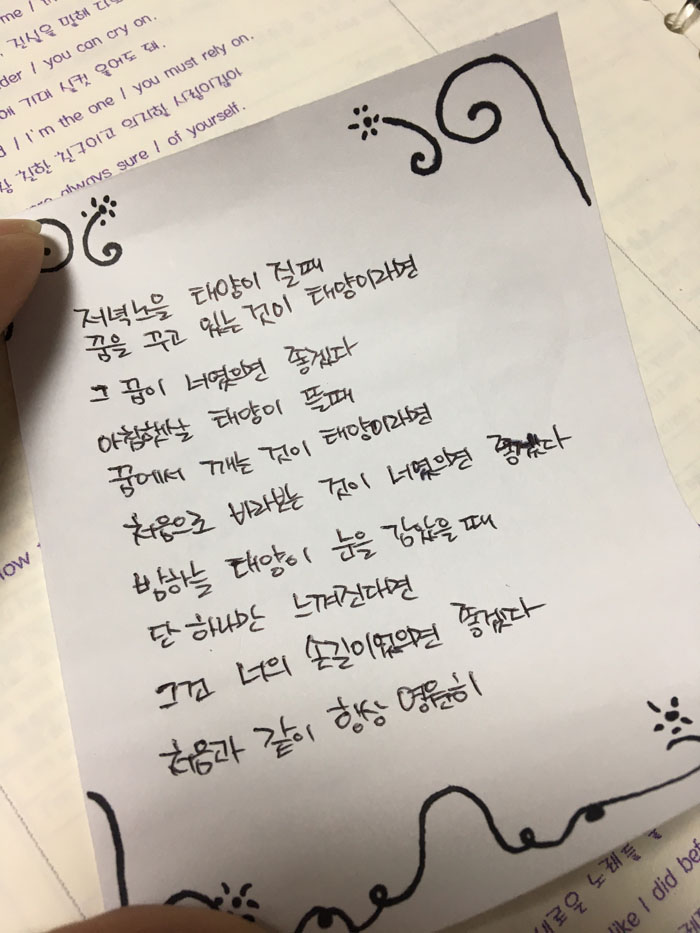 me / th
, 진심을 말해 다
der / you can cry on.
에 기대 실컷 울어도 돼.
d / I'm the one / you must rely on.
장 친한 친구이고 의지할 사람이잖아
always sure / of yourself.
저녁노을 태양이 질때
꿈을 꾸고 있는 것이 태양이라면
그 꿈이 너였으면 좋겠다
아침햇살 태양이 뜰때
꿈에서 깨는 것이 태양이라면
처음으로 바라보는 것이 너였으면 좋겠다
밤하늘 태양이 눈을 감았을 때
단 하나만 느껴진다면
그건 너의 손길이었으면 좋겠다
처음과 같이 항상 영원히
now
새로운 노래들
like I did bef